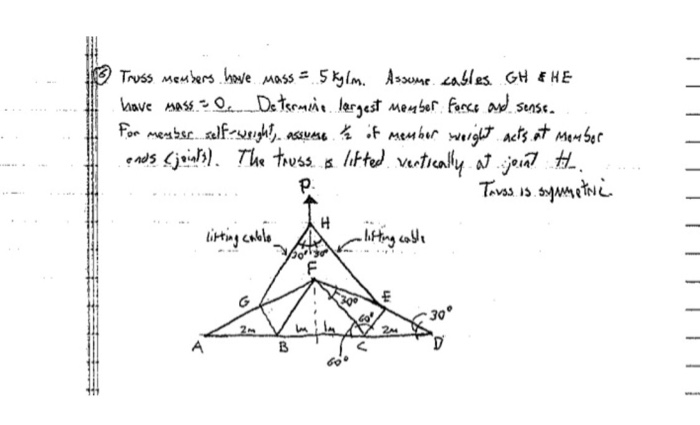 ⑥ Truss members have mass = 5 kg/m. Assume cables GH & HE
have mass = 0. Determine largest member force and sense.
For member self-weight, assume ½ of member weight acts at member
ends (joints). The truss is lifted vertically at joint H.
Truss is symmetric
P
H
lifting cable
lifting cable
30° 30°
F
G
30°
E
60°
30°
2m
1m
1m
2m
A
B
C
D
60°